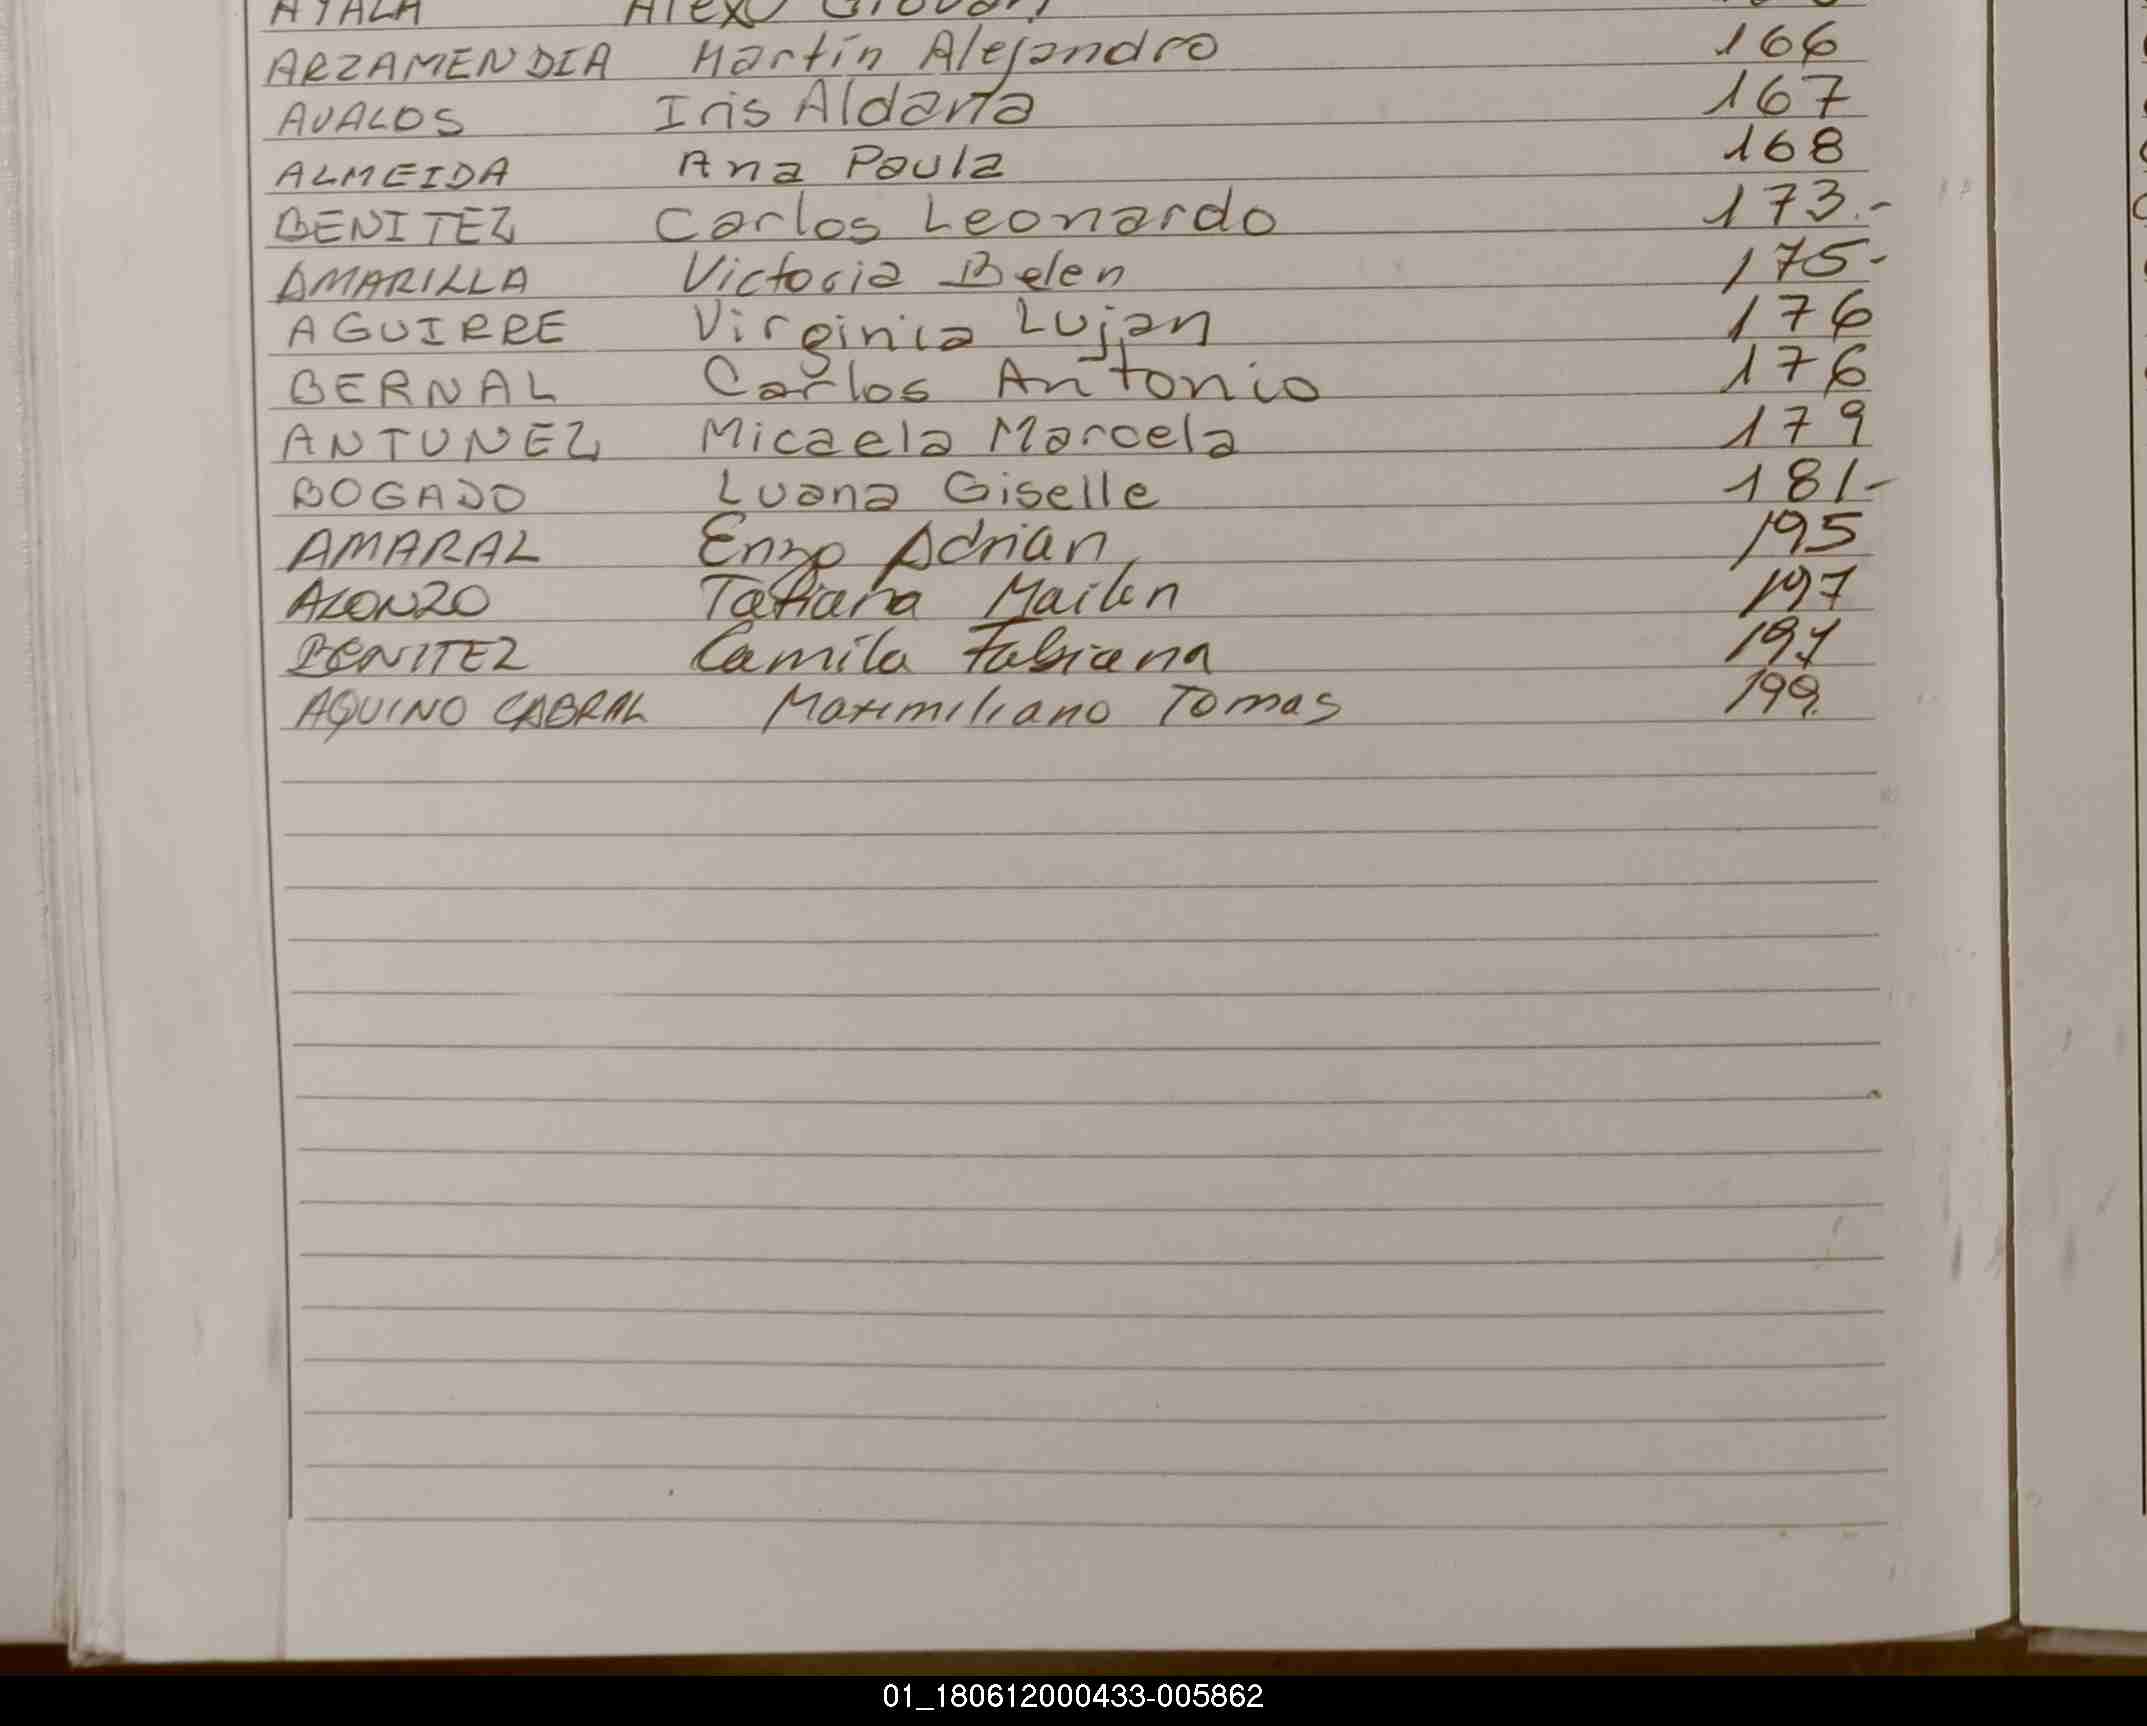 AYALA Alex Giovani
ARZAMENDIA Martín Alejandro 166
AVALOS Iris Aldana 167
ALMEIDA Ana Paula 168
BENITEZ Carlos Leonardo 173.-
AMARILLA Victoria Belen 175-
AGUIRRE Virginia Lujan 176
BERNAL Carlos Antonio 176
ANTUNEZ Micaela Marcela 179
BOGADO Luana Giselle 181-
AMARAL Enzo Adrian 195
ALONZO Tatiana Mailen 197
BENITEZ Camila Fabiana 197
AQUINO CABRAL Maximiliano Tomas 199.
01_180612000433-005862